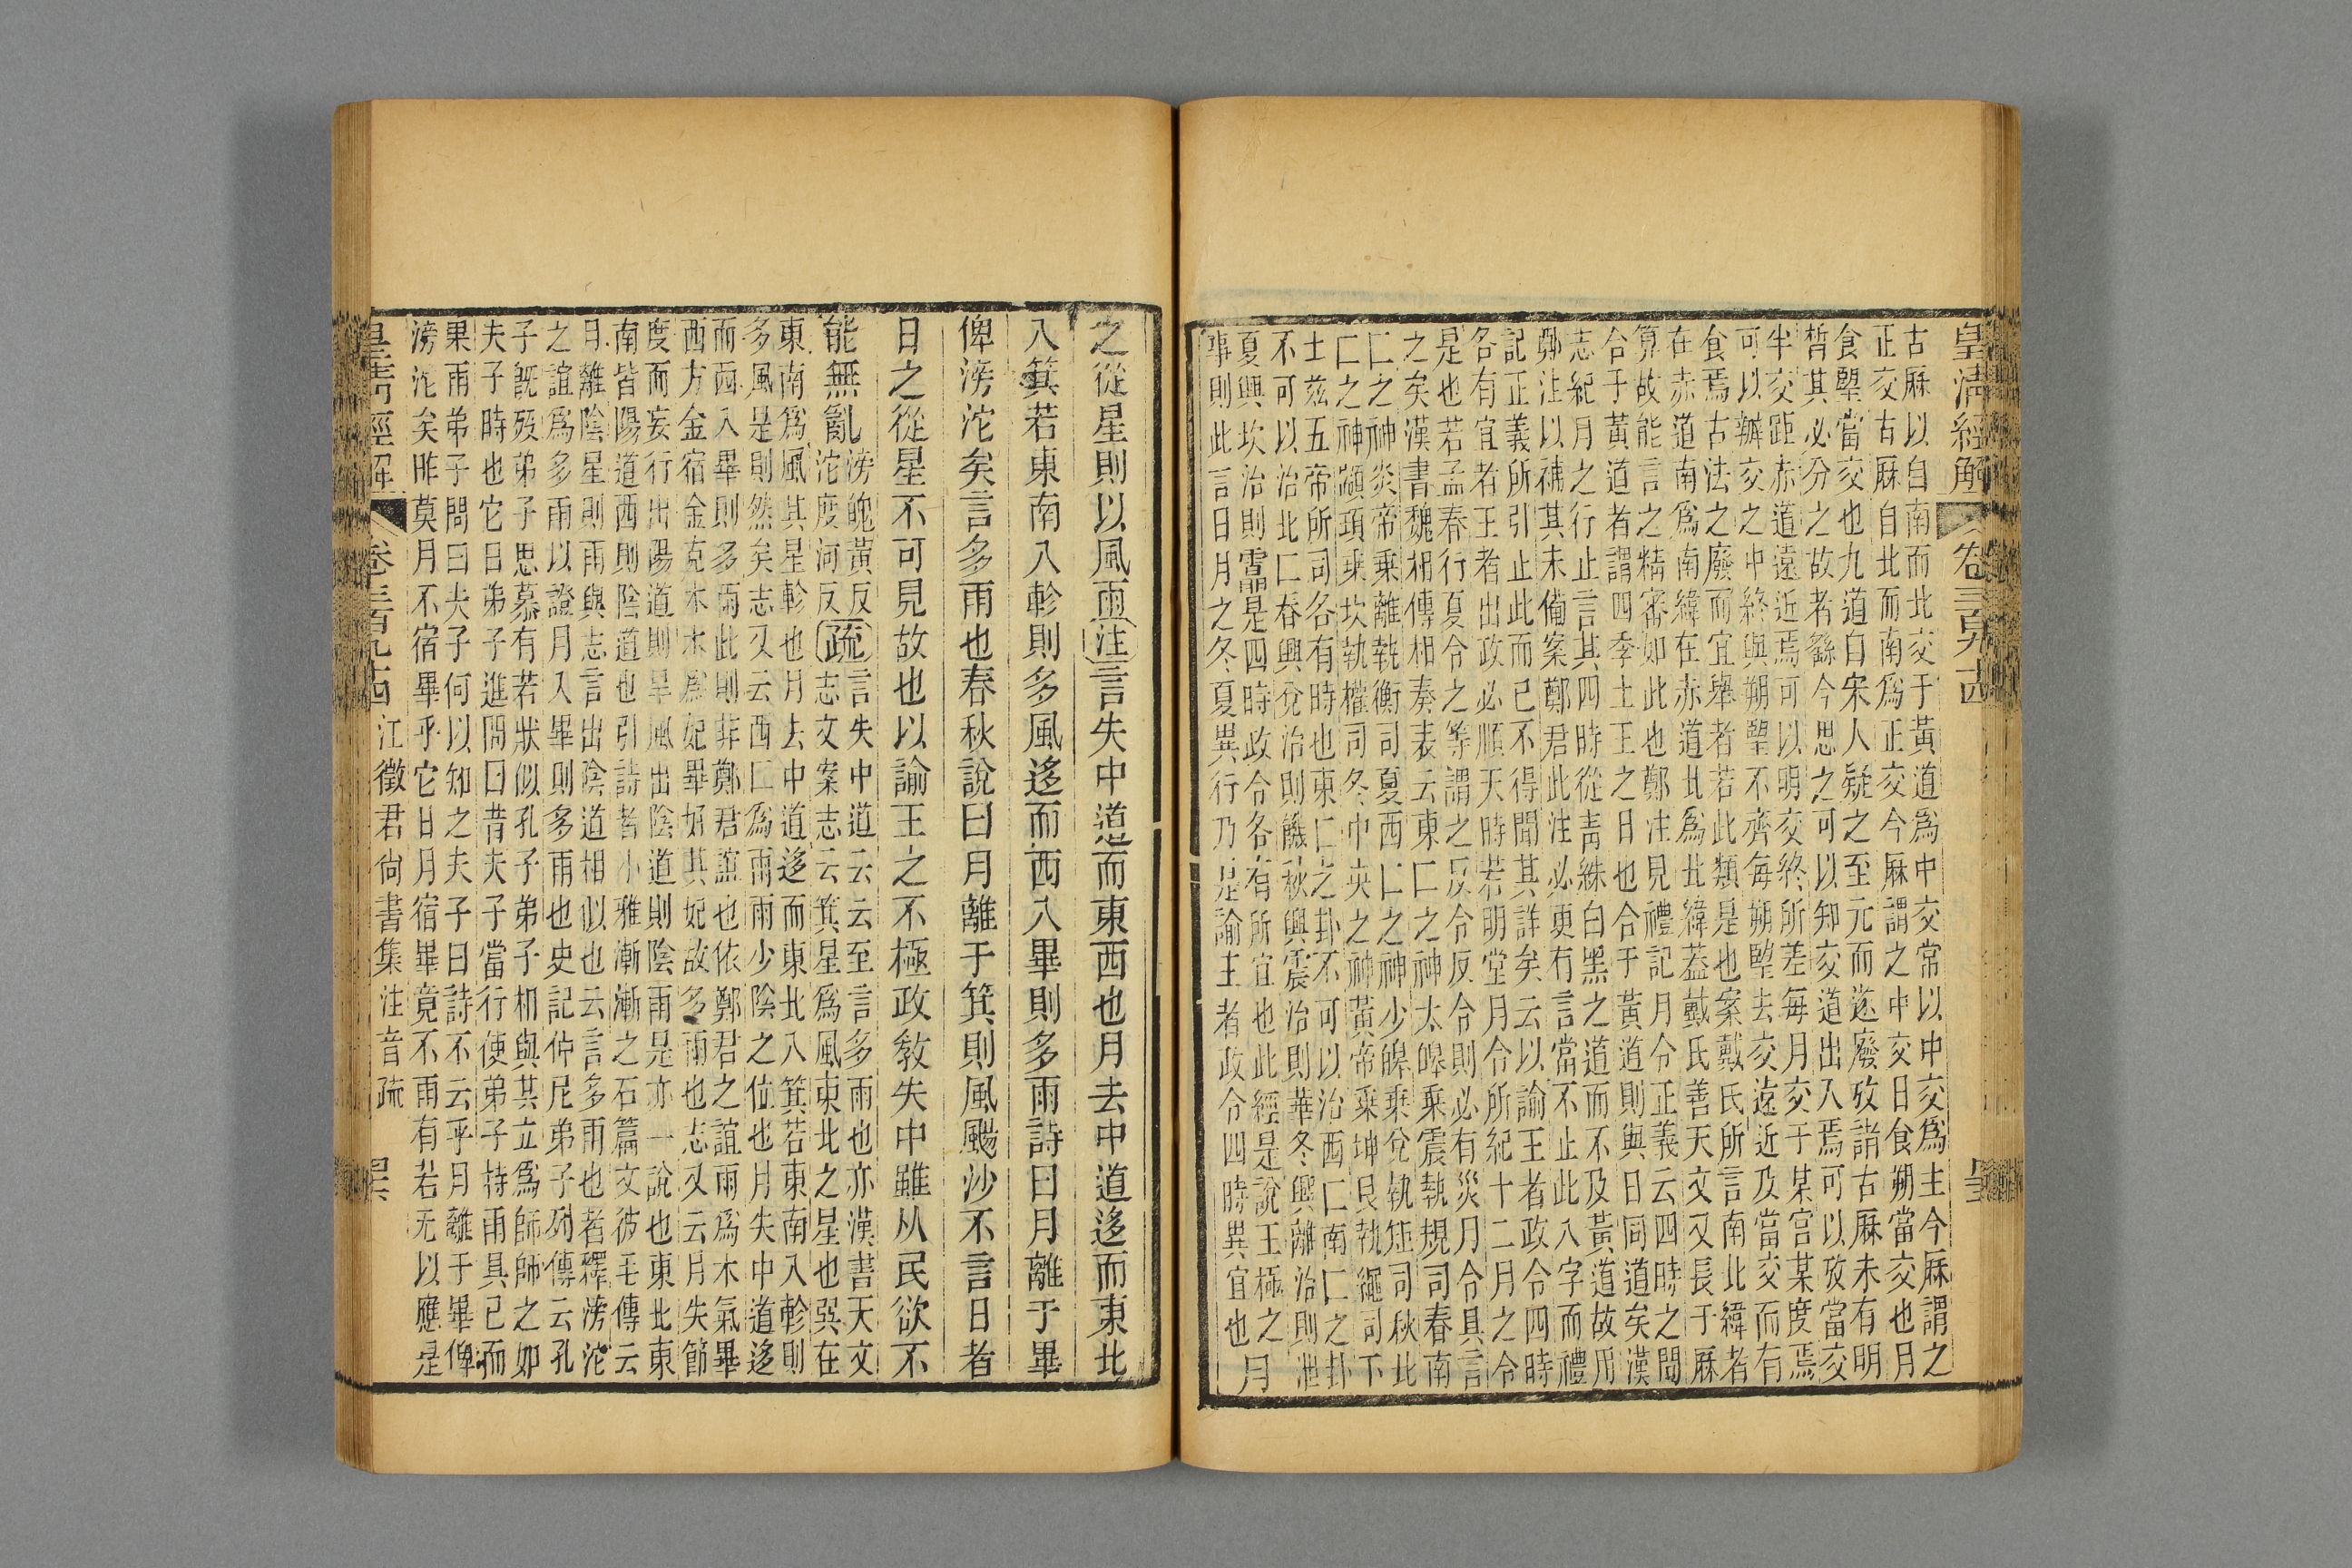 皇淸經解　卷三百九十四
古厤以自南而北交于黃道爲中交常以中交爲主今厤謂之
正交古厤自北而南爲正交今厤謂之中交日食朔當交也月
食朢當交也九道白宋人疑之至元而遂廢攷諸古厤未有明
晳其必分之故者繇今思之可以知交道出入焉可以攷當交
半交距赤道遠近焉可以明交終所差每月交于某宮某度焉
可以辦交之中終與朔朢不齊每朔朢去交遠近及當交而有
食焉古法之廢而宜舉者若此類是也案戴氏所言南北緯者
在赤道南爲南緯在赤道北爲北緯蓋戴氏善天文又長于厤
算故能言之精審如此也鄭注見禮記月令正義云四時之閒
合于黃道者謂四季土王之日也合于黃道則與日同道矣漢
志紀月之行止言其四時從靑絑白黑之道而不及黃道故用
鄭注以補其未備案鄭君此注必更有言當不止此八字而禮
記正義所引止此而已不得聞其詳矣云以諭王者政令四時
各有宜者王者出政必順天時若明堂月令所紀十二月之令
是也若孟春行夏令之等謂之反令反令則必有災月令具言
之矣漢書魏相傳相奏表云東匚之神太皞乗震執規司春南
匚之神炎帝乗離執衡司夏西匚之神少皞乗兌執矩司秋北
匚之神顓頊乗坎執權司冬中央之神黃帝乗坤艮執繩司下
土兹五帝所司各有時也東匚之卦不可以治西匚南匚之卦
不可以治北匚春興兌治則饑秋興震治則華冬興離治則泄
夏興坎治則雹是四時政令各有所宜也此經是說王極之
事則此言日月之冬夏異行乃是諭王者政令四時異宜也
月
之從星則以風雨注言失中道而東西也月去中道迻而東北
入箕若東南入軫則多風迻而西入畢則多雨詩曰月離于畢
俾滂沱矣言多雨也春秋說曰月離于箕則風颺沙不言日者
日之從星不可見故也以諭王之不極政敎失中雖从民欲不
能無亂
滂魄黃反
沱度河反
疏
言失中道云云至言多雨也亦漢書天文
志文案志云箕星爲風東北之星也巽在
東南爲風其星軫也月去中道迻而東北入箕若東南入軫則
多風是則然矣志又云西匚爲雨雨少陰之位也月失中道迻
而西入畢則多雨此則非鄭君誼也依鄭君之誼雨爲木氣畢
西方金宿金克木木爲妃畢好其妃故多雨也志又云月失節
度而妄行出陽道則旱風出陰道則陰雨是亦一說也東北東
南皆陽道西則陰道也引詩者小雅漸漸之石篇文彼毛傳云
月離陰星則雨與志言出陰道相似也云言多雨也者釋滂沱
之誼爲多雨以證月入畢則多雨也史記仲尼弟子列傳云孔
子旣歿弟子思慕有若狀似孔子弟子相與共立爲師師之如
夫子時也它日弟子進問曰昔夫子當行使弟子持雨具已而
果雨弟子問曰夫子何以知之夫子曰詩不云乎月離于畢俾
滂沱矣昨莫月不宿畢乎它日月宿畢竟不雨有若无以應是
皇淸經解　卷三百九十四　江徵君尙書集注音疏